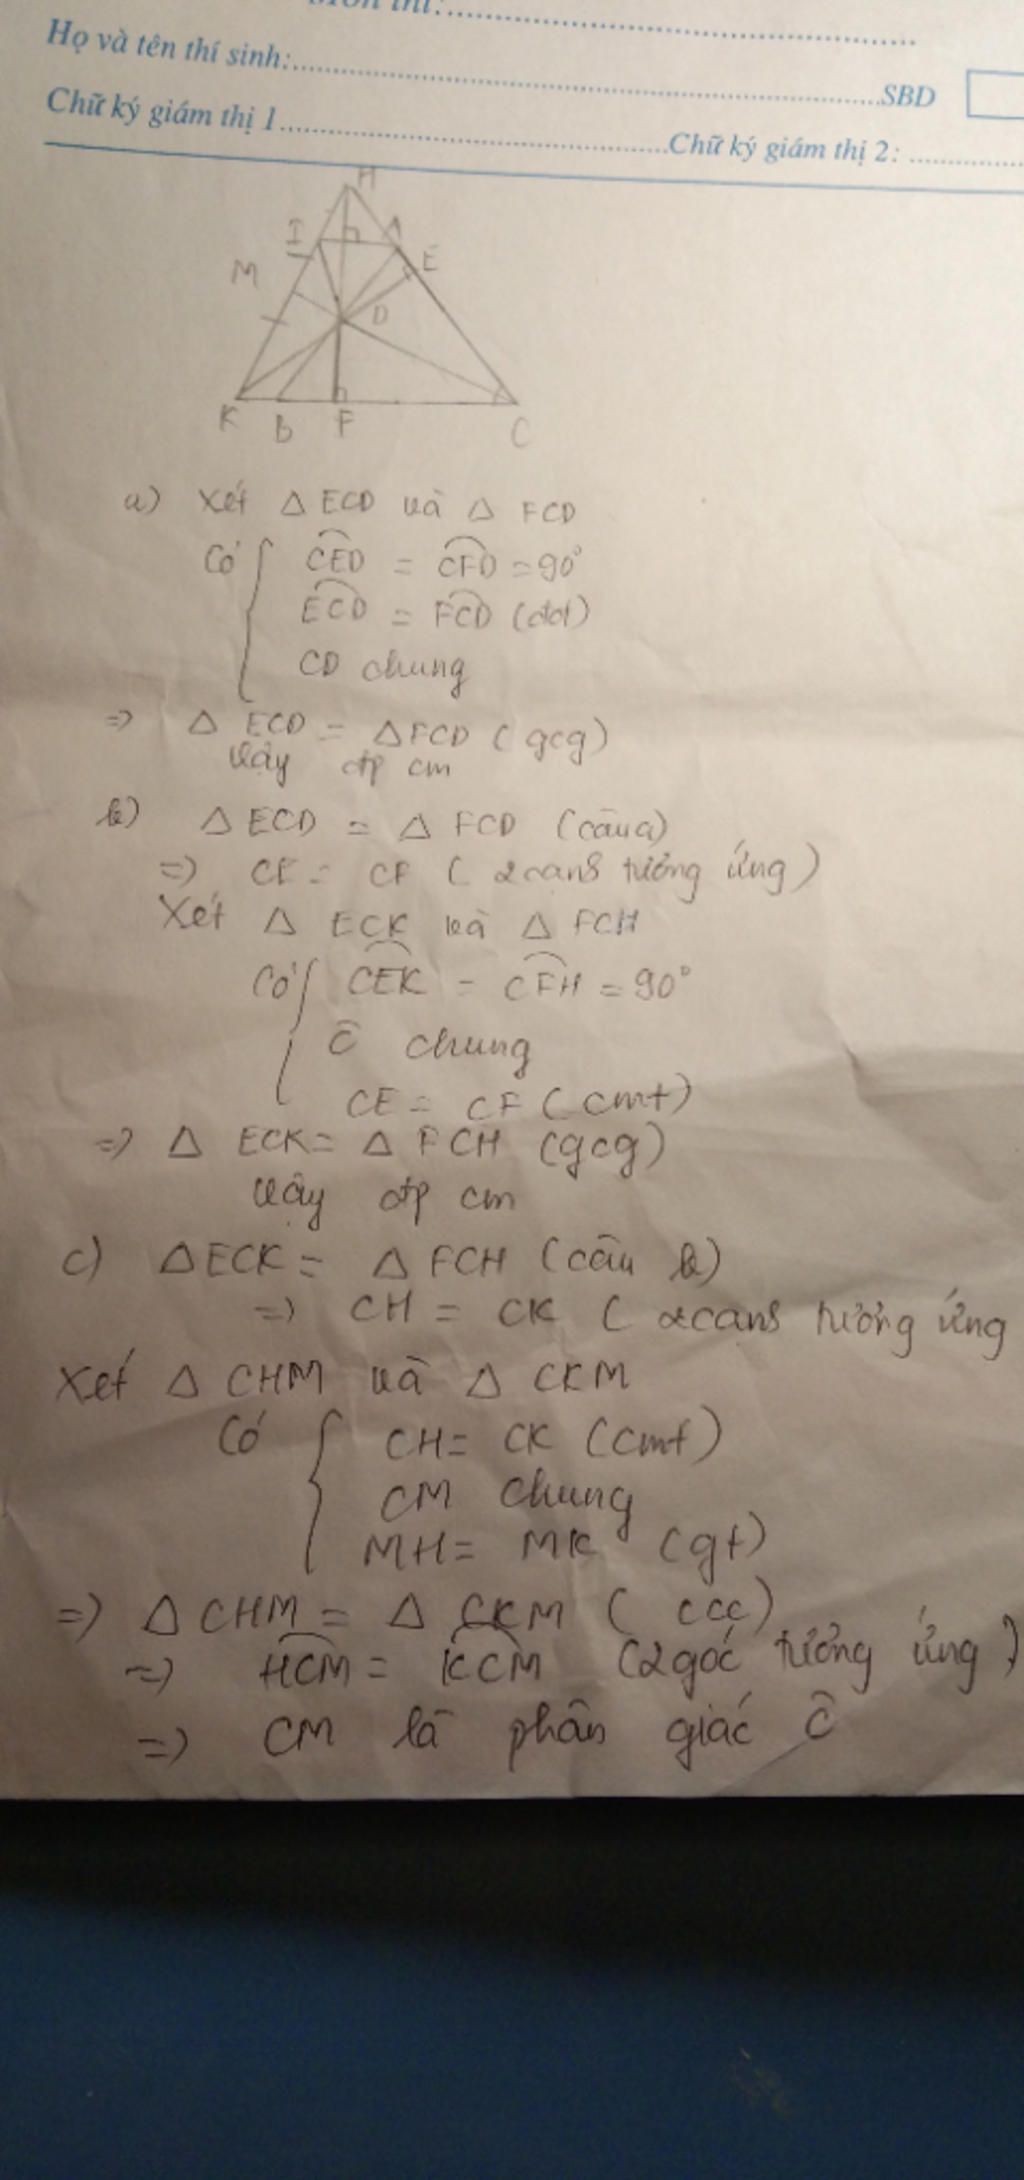 Môn thi:
Họ và tên thí sinh: SBD
Chữ ký giám thị 1 Chữ ký giám thị 2:
H
I A
M E
D
K B F C
a) Xét Δ ECD và Δ FCD
Có { CED = CFD = 90°
ECD = FCD (đđ)
CD chung
=> Δ ECD = Δ FCD (gcg)
Vậy đp cm
b) Δ ECD = Δ FCD (câu a)
=> CE = CF (2 cạnh tương ứng)
Xét Δ ECK và Δ FCH
Có { CEK = CFH = 90°
Ĉ chung
CE = CF (cmt)
=> Δ ECK = Δ FCH (gcg)
Vậy đp cm
c) Δ ECK = Δ FCH (câu b)
=> CH = CK (2 cạnh tương ứng
Xét Δ CHM và Δ CKM
Có { CH = CK (cmt)
CM chung
MH = MK (gt)
=> Δ CHM = Δ CKM (ccc)
=> HCM = KCM (2 góc tương ứng)
=> CM là phân giác Ĉ